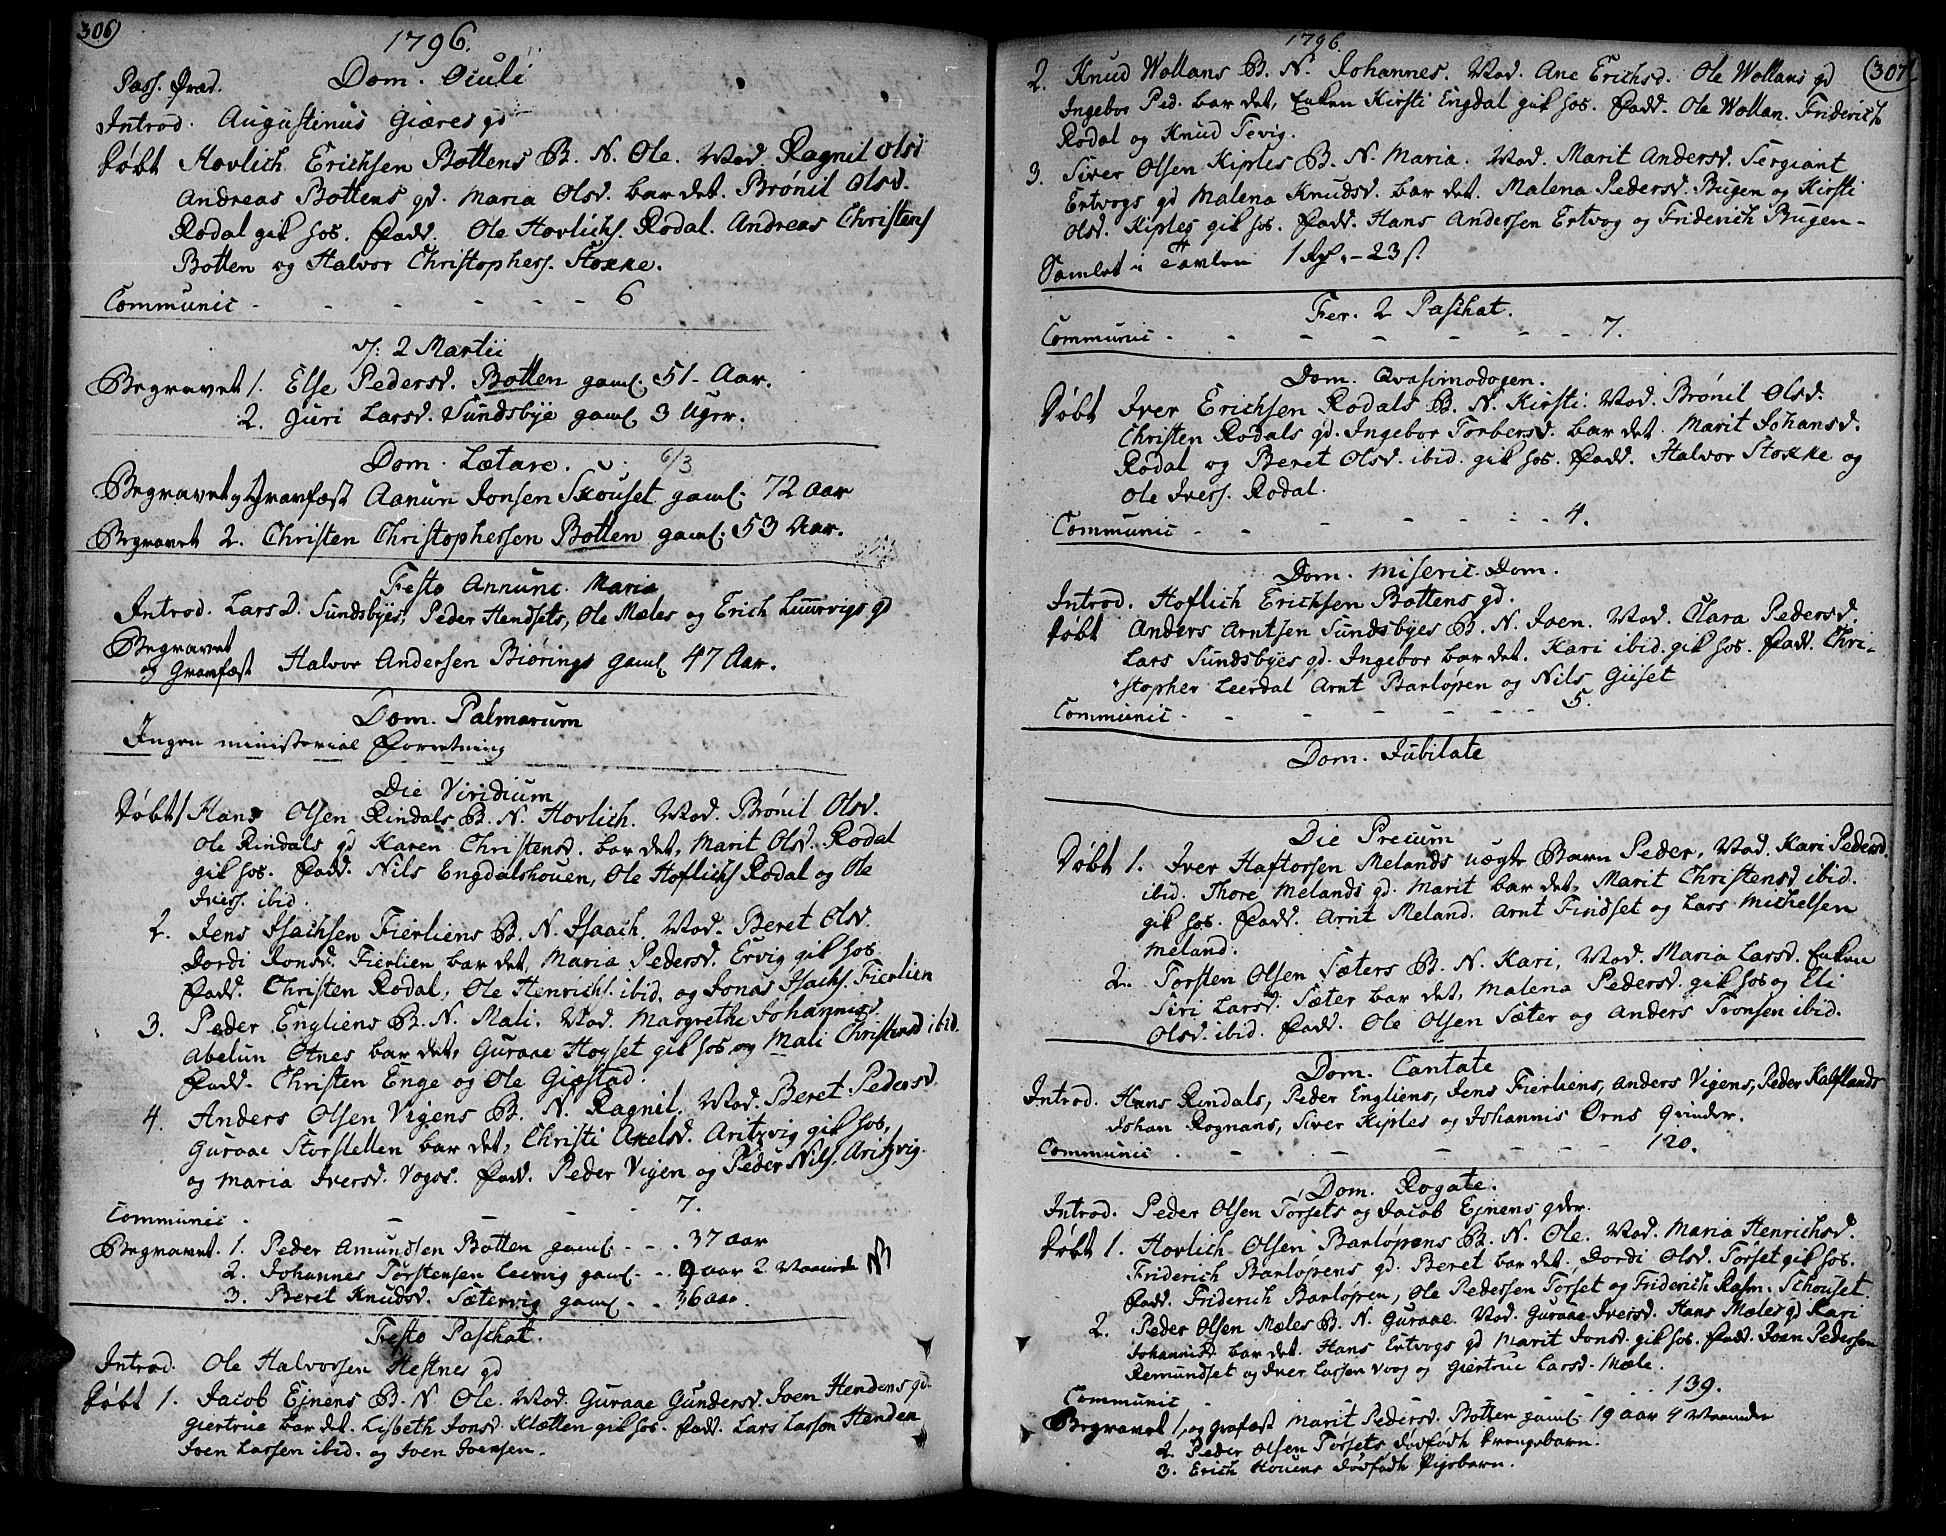 306
1796.
Pass. Præd. Dom. Oculi
Introd. Augustinus Giæres qd
Døbt Hovlich Erichsen Bottens B. N. Ole. Mod. Ragnil Olsd
Andreas Bottens qd. Maria Olsd. bar det. Brønil Olsd.
Rodal gik hos. Fadd. Ole Hovlichs. Rodal. Andreas Christens
Botten og Halvor Christophers. Stokke.
Communic - - - - - - 6
d: 2 Martii
Begravet 1. Else Pedersd. Botten gaml. 51 - Aar.
2. Juri Larsd. Sundsbye gaml 3 Uger.
Dom. Lætare. 6/3
Begravet og Gravfæst Aanun Jonsen Skouset gaml: 72 Aar
Begravet 2. Christen Christophersen Botten gaml: 53 Aar.
Festo Annunc. Maria
Introd. Lars D. Sundsbyes, Peder Hendsets, Ole Mæles og Erich Luurvigs qd
Begravet
og Gravfæst Halvor Andersen Biørings gaml 47 Aar.
Dom. Palmarum
Ingen ministerial Forretning
Die Viridium
Døbt 1 Hans Olsen Rindals B. N. Hovlich. Mod. Brønil Olsd.
Ole Rindals qd Karen Christensd. bar det, Marit Olsd. Rodal
gik hos. Fadd. Nils Engdalshouen, Ole Hoflichs Rodal og Ole
Ivers. ibid.
2. Jens Isachsen Fierliens B. N. Isaach. Mod. Beret Olsd.
Dordi Jonsd. Fierlien bar det, Maria Pedersd. Ervig gik hos
Fadd. Christen Rodal, Ole Henrichs. ibid. og Jonas Isachs. Fierlien
3. Peder Engliens B. N. Mali. Mod. Margrethe Johannisd.
Abelun Otnes bar det, Guraae Hogset gik hos og Mali Christensd ibid.
Fadd. Christen Enge og Ole Giæstad.
4. Anders Olsen Vigens B. N. Ragnil. Mod. Beret Pedersd.
Guraae Storslellen bar det, Christi Axelsd. Aritzvig gik hos,
og Maria Iversd. Vogos. Fadd. Peder Vigen og Peder Nils. Aritzvig.
Communic. - - - - 7.
Begravet. 1. Peder Amundsen Botten gaml - - . 37 aar
2. Johannes Torstensen Leervig gaml - . 9 aar 2 Maaneder NB
3. Beret Knudsd. Sætervig gaml - . 36 aar.
Festo Paschat.
Introd. Ole Halvorsen Hestnes qd
Døbt 1. Jacob Ejnens B. N. Ole. Mod. Guraae Gundersd. Joen Hendens qd.
Giertrue bar det. Lisbeth Jonsd. Klætten gik hos. Fadd. Lars Larsson Henden
Joen Larsen ibid. og Joen Joensen.
1796.
307
2. Knud Wollans B. N. Johannes. Mod. Ane Erichsd. Ole Wollans qd
Ingebor Ped. bar det, Enken Kirsti Engdal gik hos. Fadd. Ole Wollan. Friderich
Rodal og Knud Tevig.
3. Siver Olsen Kiples B. N. Maria. Mod. Marit Andersd. Sergiant
Ertvogs qd Malena Knudsd. bar det. Malena Pedersd. Bugen og Kirsti
Olsd. Kiples gik hos. Fadd. Hans Andersen Ertvog og Friderich Bugen -
Samlet i Tavlen 1 Rd. - 23 s.
Fer. 2 Paschat.
Communic - - - - - - - 7.
Dom. Qvasimodogen.
Døbt Iver Erichsen Rodals B. N. Kirsti. Mod. Brønil Olsd.
Christen Rodals qd. Ingebor Torbersd. bar det. Marit Johansd.
Rodal og Beret Olsd. ibid. gik hos. Fadd. Halvor Stokke og
Ole Ivers. Rodal.
Communic - - - - - - 4.
Dom. Miseric. Dom.
Introd. Hoflich Erichsen Bottens qd.
Døbt Anders Arntsen Sundsbyes B. N. Joen. Mod. Clara Pedersd.
Lars Sundsbyes qd. Ingebor bar det. Kari ibid. gik hos. Fadd. Chri-
stopher Leerdal Arnt Barlopen og Nils Giiset
Communic. - - - - - - 5.
Dom. Jubilate
Die Precum
Døbt 1. Iver Haftorsen Melands uægte Barn Peder, Mod. Kari Pedersd.
ibid. Thore Melands qd. Marit bar det, Marit Christensd ibid.
gik hos. Fadd. Arnt Meland. Arnt Findset og Lars Michelsen
Meland.
2. Torsten Olsen Sæters B. N. Kari, Mod. Maria Larsd. Enken
Siri Larsd. Sæter bar det, Malena Pedersd. gik hos og Eli
Olsd. ibid. Fadd. Ole Olsen Sæter og Anders Tronsen ibid.
Dom. Cantate
Introd. Hans Rindals, Peder Engliens, Jens Fierliens, Anders Vigens, Peder Kalflands
Johan Rognans, Siver Kiples og Johannis Orns Qvinder.
Communic . - - - - - 120.
Dom. Rogate.
Introd. Peder Olsen Torsets og Jacob Ejnens qdr.
Døbt 1. Hovlich Olsen Barlopens B. N. Ole. Mod. Maria Henrichsd.
Friderich Barlopens qd. Beret bar det, Dordi Olsd. Torset gik hos.
Fadd. Friderich Barlopen, Ole Pedersen Torset og Friderich Rasm. Schouset.
2. Peder Olsen Mæles B. N. Guraae. Mod. Guraae Iversd. Hans Mæles qd Kari
Johannisd bar det. Hans Ertvogs qd Marit Jonsd. gik hos. Fadd. Joen Pedersen
Remundset og Iver Larsen Voog og Giertrue Larsd. Mæle.
Communic - - - - 139.
Begravet 1, og grafæst Marit Pedersd. Botten gaml - 19 aar 4 Maaneder
2. Peder Olsen Torsets dødfødh Drengebarn.
3. Erich Houens dødfødh Pigebarn.